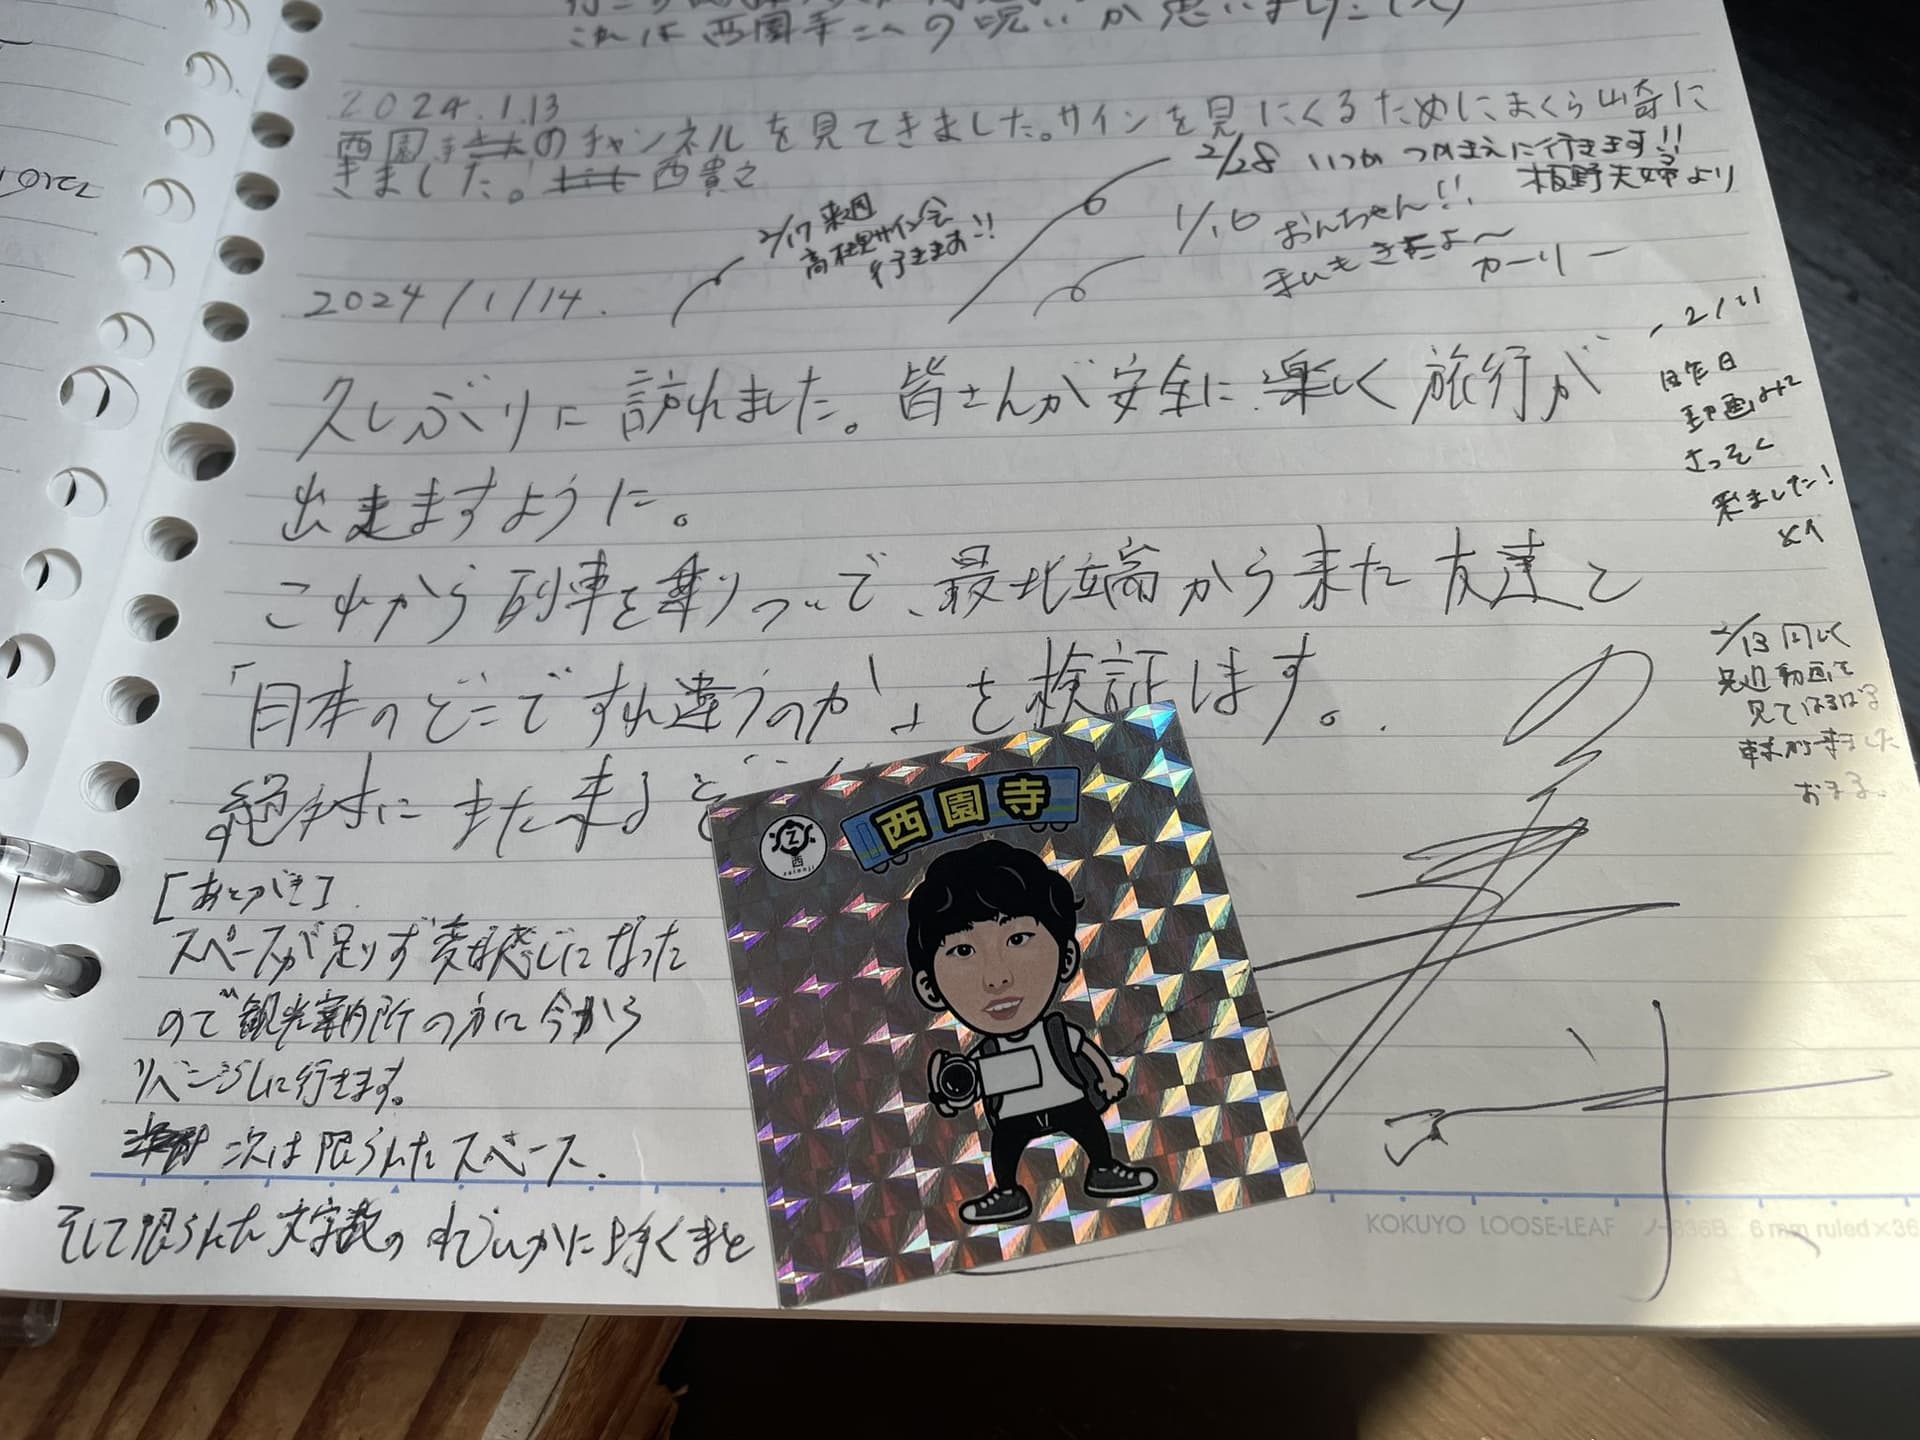 これは西園寺への呪いか思いました(笑)
2024.1.13
西園寺のチャンネルを見てきました。サインを見にくるためにまくら山奇に
きました。! 西貴之
2/28 いつかつかまえに行きます!!
板野夫婦より
2/17 来週
高松サイン会
行きます!!
1/16 おんちゃん!!
まいもきたよ〜
カーリー
2024/1/14.
久しぶりに訪れました。皆さんが安全に楽しく旅行が
出来ますように。
2/11
昨日
動画みて
さっそく
来ました!
これから列車を乗りついで、最北端から来た友達と
「日本のどこですれ違うのか」を検証します。
絶対にまた来るぞ
2/13 同じく
先日動画を
見てはるばる
来ました
[あとがき]
スペースが足りず変な感じになった
ので観光案内所の方に今から
リベンジしに行きます。
次は限られたスペース、
そして限られた文字数の中でいかに上手くまと
西園寺
西
saionji
KOKUYO LOOSE-LEAF ノ-836B 6 mm ruled×36